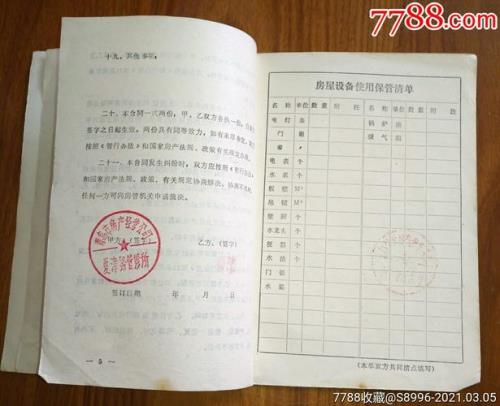 7788.com
十九、其他事项:
二十、本合同一式两份,甲、乙双方各执一份,自
签字之日起生效,两份具有同等效力,如有未尽事宜,
按照《暂行办法》和国家房产法规、政策有关规定办理。
二十一、本合同发生纠纷时,双方应按照《暂行办法》
和国家房产法规、政策、有关规定协商解决,协商不成时,
任何一方可向房管机关申请裁决。
甲方 (签字) 乙方:(签字)
青岛市房产经营公司
房管所
签订日期 年 月 日
— 5 —
房屋设备使用保管清单
名称 单位 数量 附注 名称 单位 数量 附注
电灯 盏 锅炉 台
门 扇 暖气 组
窗
电表 个
水表 个
板壁 M²
吊铺 M²
壁橱 个
水龙头 个
便器 个
水池 个
门锁
水盆
(本单双方共同清点填写)
7788收藏@S8996-2021.03.05